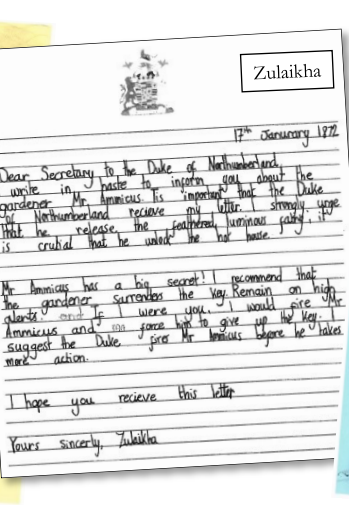 Zulaikha
17th Janurary 1872
Dear Secretary to the Duke of Northumberland,
I write in haste to inform you about the
gardener Mr. Ammicus. It is important that the Duke
of Northumberland recieve my letter. I strongly urge
that he release the feathered, luminous it
is crucial that he unlock the hot house.
Mr Ammicus has a big secret! I recommend that
the gardener surrenders the key. Remain on high
alents. If I were you, I would fire Mr
Ammicus and force him to give up the key. I
suggest the Duke fires Mr Ammicus before he takes
more action.
I hope you recieve this letter
Yours sincerly, Zulaikha